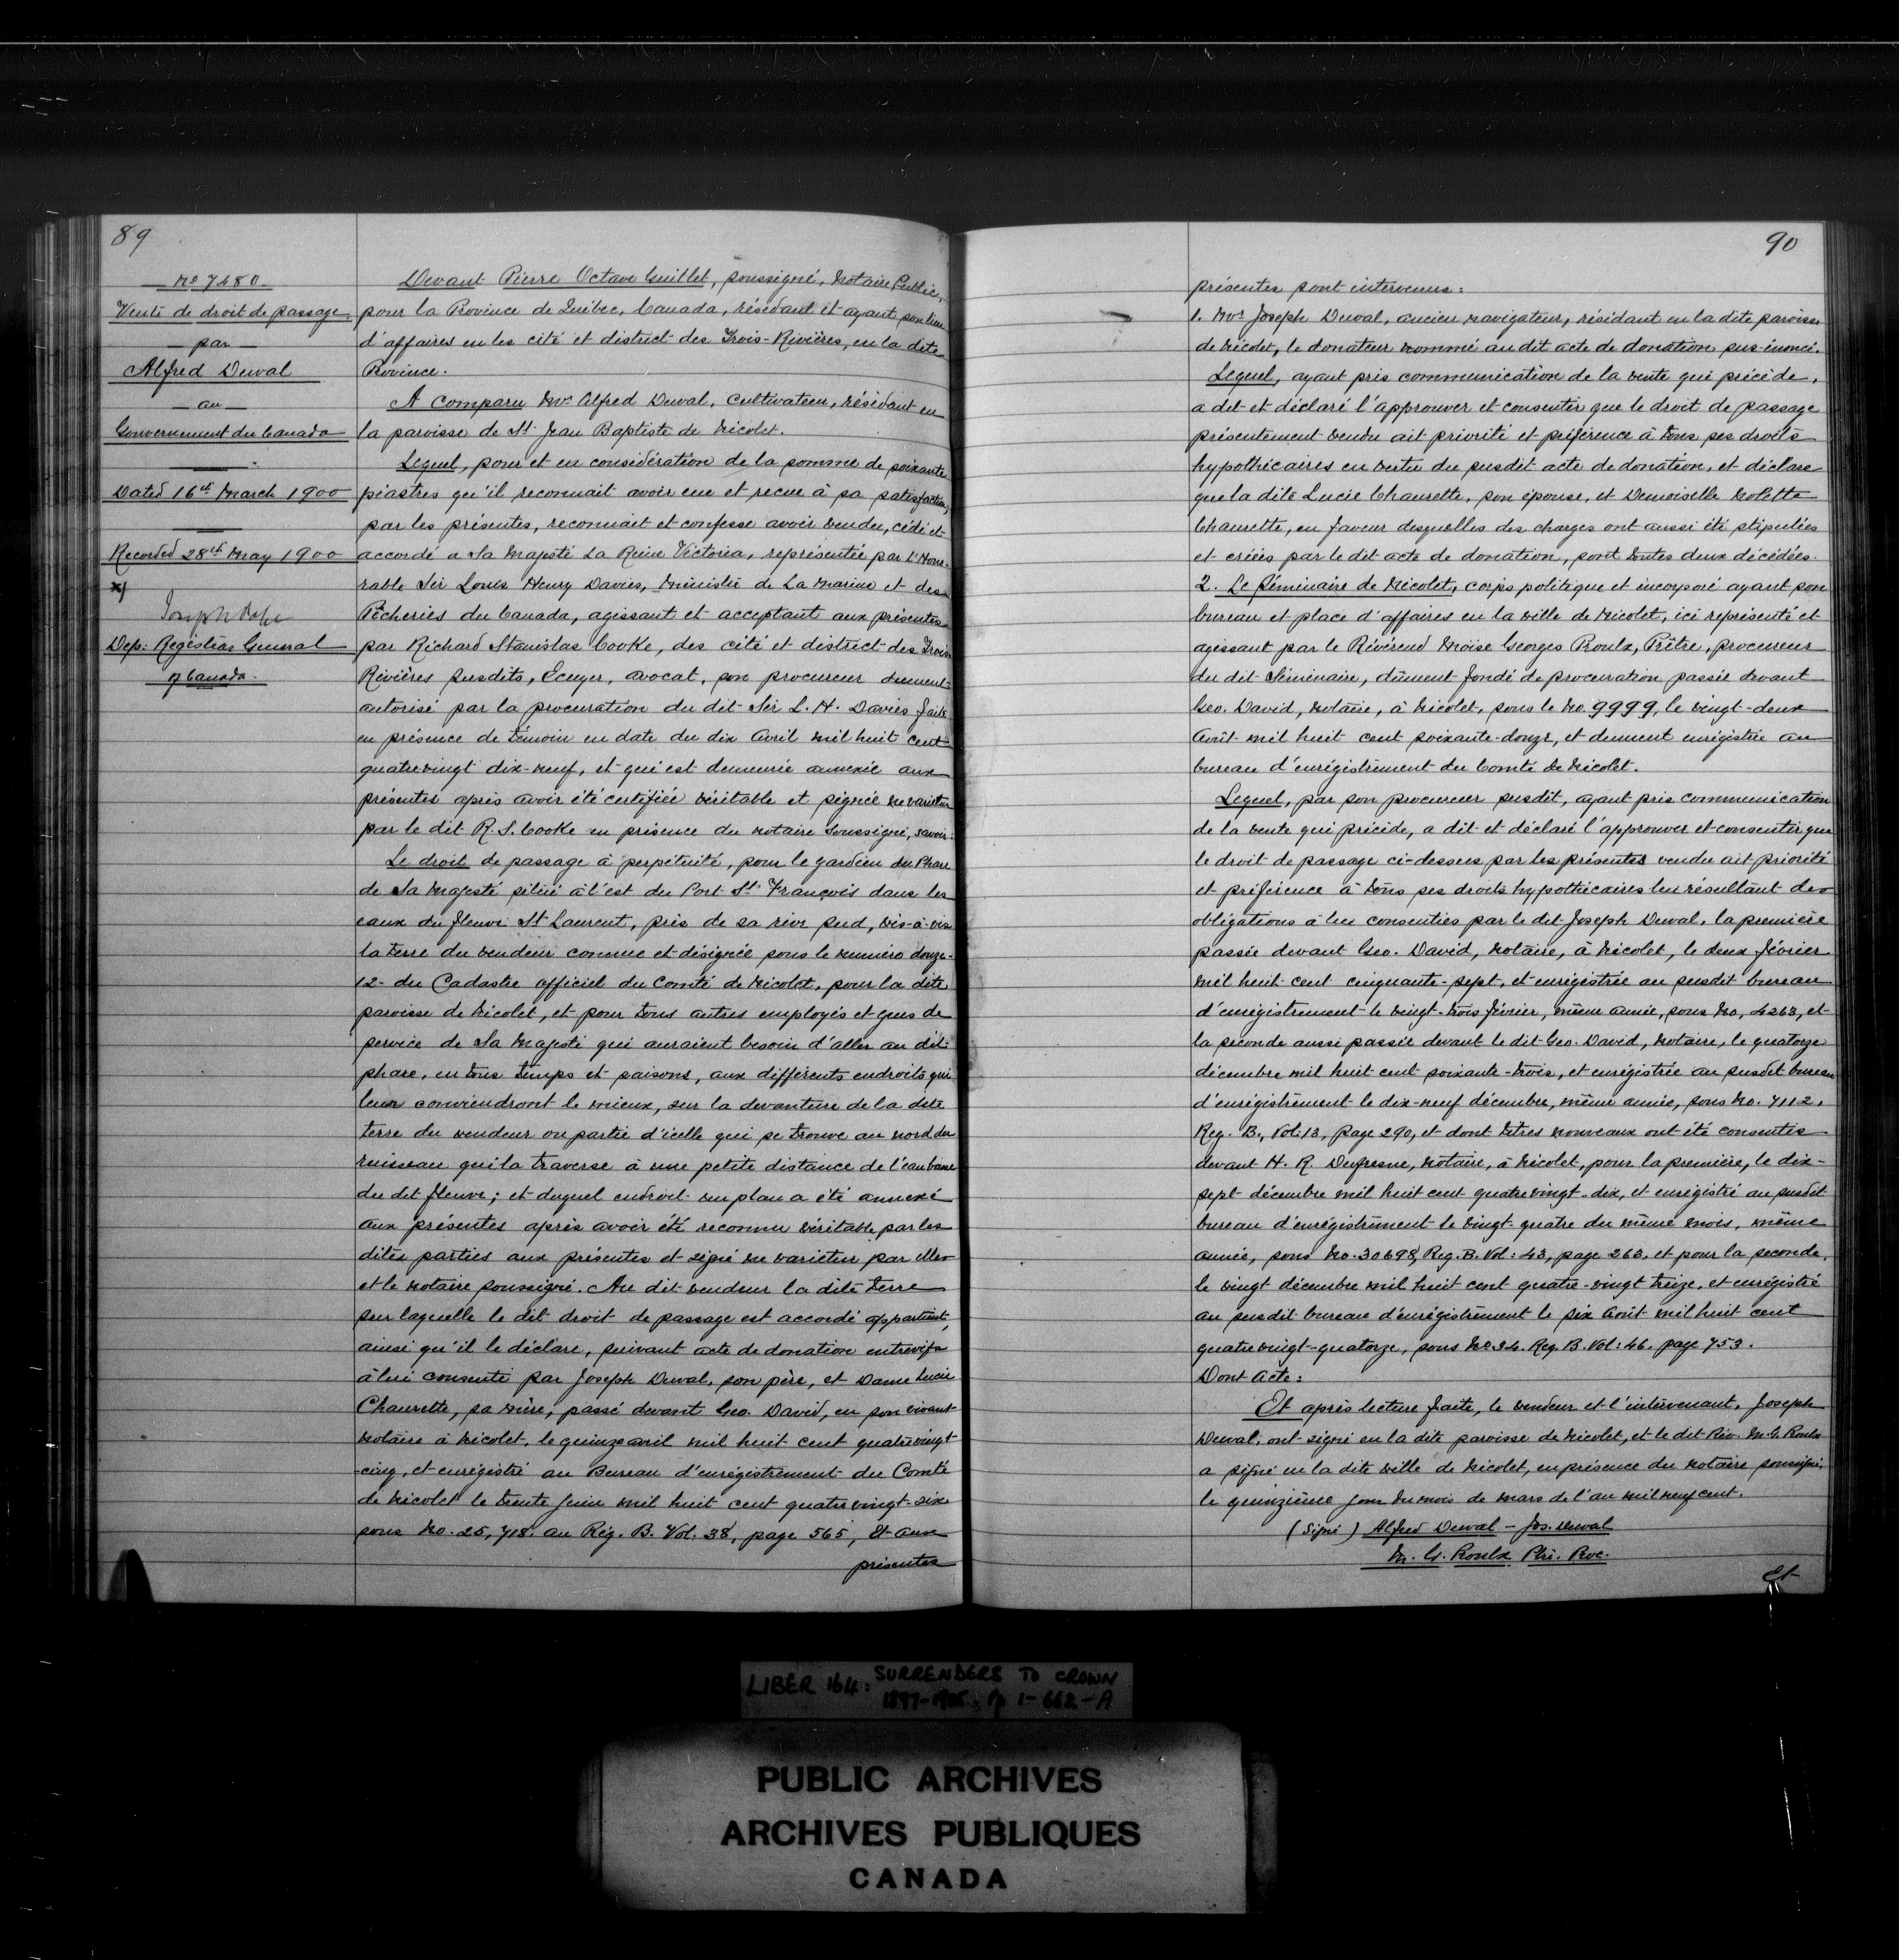 89
No 7480
Vente de droit de passage
par
Alfred Duval
au
Gouvernement du Canada
Dated 16th March 1900
Recorded 28th May 1900
x)
Joseph Pope
Dep: Registrar General
of Canada.
Devant Pierre Octave Guillet, soussigné, Notaire Public,
pour la Province de Québec, Canada, résidant et ayant son lieu
d'affaires en les cité et district des Trois-Rivières, en la dite
Province.
A Comparu Mr Alfred Duval, Cultivateur, résidant en
la paroisse de St Jean Baptiste de Nicolet.
Lequel, pour et en considération de la somme de soixante
piastres qu'il reconnait avoir eue et recue à sa satisfaction,
par les présentes, reconnait et confesse avoir vendu, cédé et
accordé a Sa Majesté La Reine Victoria, représentée par L'Hono-
rable Sir Louis Henry Davies, Ministre de La Marine et des
Pêcheries du Canada, agissant et acceptant aux présentes
par Richard Stanislas Cooke, des cité et district des Trois
Rivières susdits, Ecuyer, avocat, son procureur dument
autorisé par la procuration du dit Sir L. H. Davies faite
en présence de témoin en date du dix Avril mil huit cent
quatrevingt dix-neuf, et qui est demeurée annexée aux
présentes après avoir été certifiée véritable et signée ne varietur
par le dit R. S. Cooke en présence du notaire Soussigné, savoir:
Le droit de passage à perpétuité, pour le gardien du Phare
de Sa Majesté situé à l'est du Port St François dans les
eaux du fleuve St Laurent, près de sa rive sud, vis-à-vis
la terre du vendeur connue et désignée sous le numéro douze-
12- du Cadastre officiel du Comté de Nicolet, pour la dite
paroisse de Nicolet, et pour tous autres employés et gens de
service de Sa Majesté qui auraient besoin d'aller au dit
phare, en tous temps et saisons, aux différents endroits qui
leur conviendront le mieux, sur la devanture de la dite
terre du vendeur ou partie d'icelle qui se trouve au nord du
ruisseau qui la traverse à une petite distance de l'eau basse
du dit fleuve; et duquel endroit un plan a été annexé
aux présentes après avoir été reconnu véritable par les
dites parties aux présentes et signé ne varietur par elles
et le notaire soussigné. Au dit vendeur la dite terre
sur laquelle le dit droit de passage est accordé appartient,
ainsi qu'il le déclare, suivant acte de donation entrevifs
à lui consenti par Joseph Duval, son père, et Dame Lucie
Chaurette, sa mère, passé devant Geo. David, en son vivant
notaire à Nicolet, le quinze avril mil huit cent quatrevingt
-cinq, et enrégistré au Bureau d'enrégistrement du Comté
de Nicolet le trente Juin mil huit cent quatrevingt-six
sous No. 25,718. au Rég. B. Vol. 38, page 565, Et aux
présentes
90
présentes sont intervenus:
1. Mr Joseph Duval, ancien navigateur, résidant en la dite paroisse
de Nicolet, le donateur nommé au dit acte de donation sus-énoncé.
Lequel, ayant pris communication de la vente qui précède,
a dit et déclaré l'approuver et consentir que le droit de passage
présentement vendu ait priorité et préférence à tous ses droits
hypothécaires en vertu du susdit acte de donation, et déclare
que la dite Lucie Chaurette, son épouse, et Demoiselle Molette
Chaurette, en faveur desquelles des charges ont aussi été stipulées
et créées par le dit acte de donation, sont toutes deux décédées.
2. Le Séminaire de Nicolet, corps politique et incorporé ayant son
bureau et place d'affaires en la ville de Nicolet, ici représenté et
agissant par le Révérend Moïse Georges Proulx, Prêtre, procureur
du dit Séminaire, dûment fondé de procuration passée devant
Geo. David, notaire, à Nicolet, sous le No. 9999, le vingt-deux
Août mil huit cent soixante-douze, et dument enrégistrée au
bureau d'enrégistrement du Comté de Nicolet.
Lequel, par son procureur susdit, ayant pris communication
de la vente qui précède, a dit et déclaré l'approuver et consentir que
le droit de passage ci-dessus par les présentes vendu ait priorité
et préférence à tous ses droits hypothécaires lui résultant des
obligations à lui consenties par le dit Joseph Duval, la première
passée devant Geo. David, Notaire, à Nicolet, le deux février
mil huit cent cinquante-sept, et enrégistrée au susdit bureau
d'enrégistrement le vingt-trois février, même année, sous No, 4263, et
la seconde aussi passée devant le dit Geo. David, Notaire, le quatorze
décembre mil huit cent soixante-trois, et enrégistrée au susdit bureau
d'enrégistrement le dix-neuf décembre, même année, sous No. 7112,
Reg. B., Vol. 13, page 290, et dont titres nouveaux ont été consentis
devant H. R. Dufresne, Notaire, à Nicolet, pour la première, le dix-
sept décembre mil huit cent quatrevingt-dix, et enrégistré au susdit
bureau d'enrégistrement le vingt-quatre du même mois, même
année, sous No. 30698, Reg. B. Vol: 43, page 263, et pour la seconde,
le vingt décembre mil huit cent quatre-vingt treize, et enrégistré
au susdit bureau d'enrégistrement le six Août mil huit cent
quatrevingt-quatorze, sous No 34. Reg. B. Vol: 46. page 753.
Dont Acte:
Et après lecture faite, le vendeur et l'intervenant, Joseph
Duval, ont signé en la dite paroisse de Nicolet, et le dit Rév. M. G. Proulx
a signé en la dite ville de Nicolet, en présence du notaire soussigné,
le quinzième jour du mois de mars de l'an mil neuf cent.
(Signé) Alfred Duval - Jos. Duval
M. G. Proulx Ptre. Proc.
Et
LIBER 164: SURRENDERS TO CROWN
1897-1905, Pp 1-662-A
PUBLIC ARCHIVES
ARCHIVES PUBLIQUES
CANADA